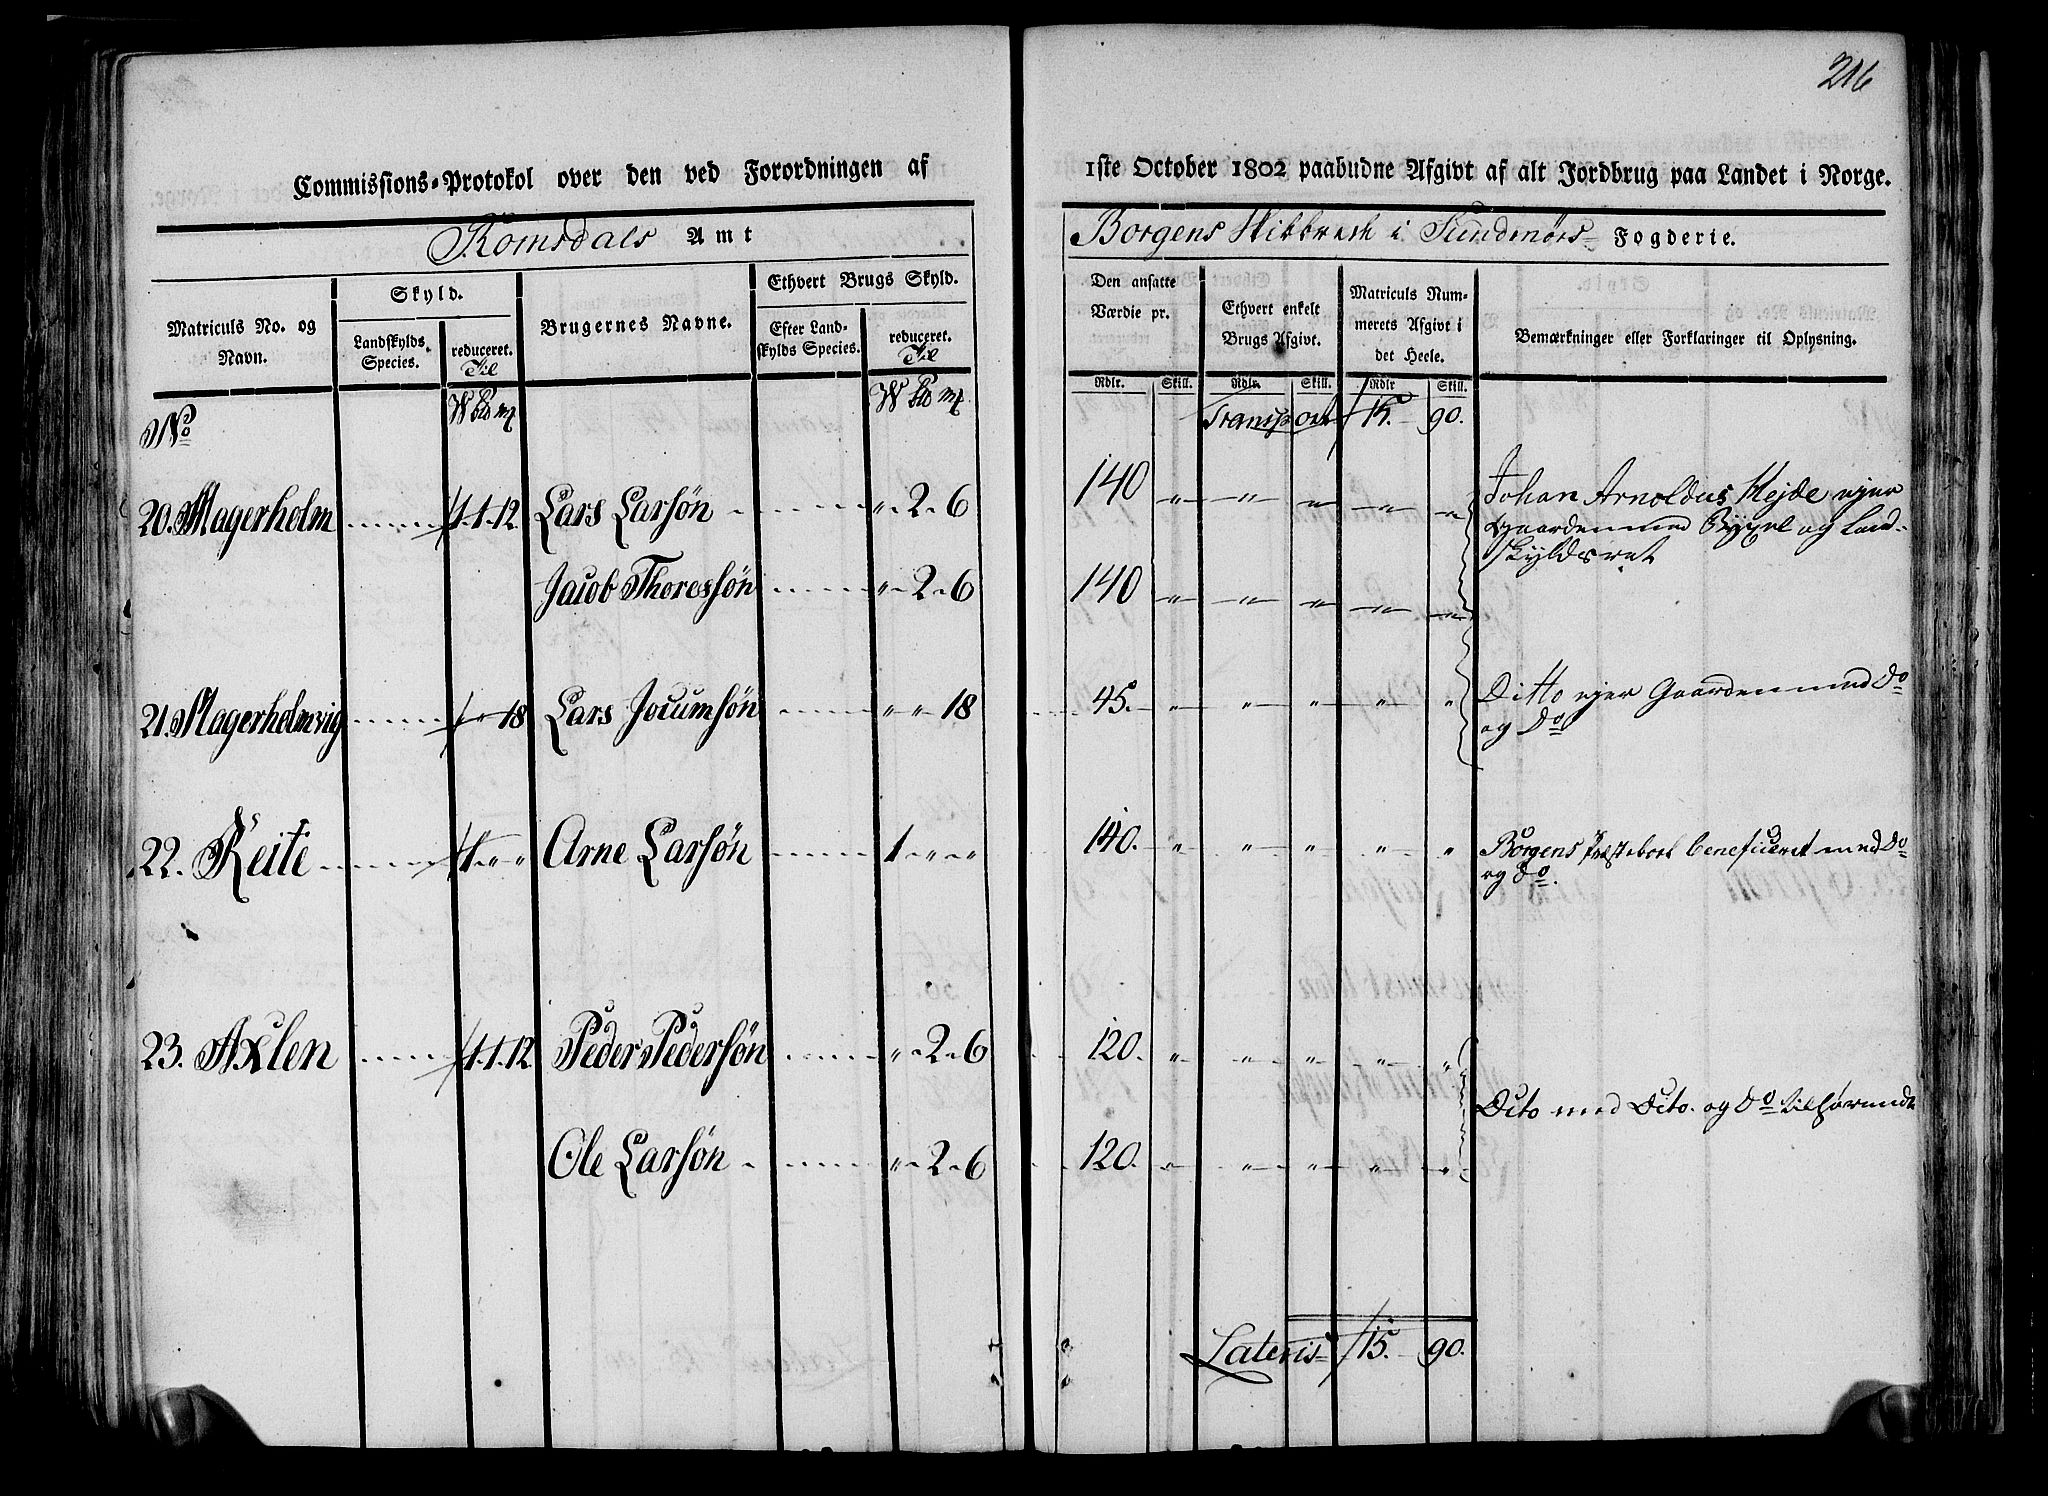 216
Commissions-Protokol over den ved Forordningen af 1ste October 1802 paabudne Afgivt af alt Jordbrug paa Landet i Norge.
Romsdals Amt Borgens Skibbrede i Sundmørs Fogderie.
Matriculs No. og Navn.
Skyld.
Landskylds Species.
reduceret.
Brugernes Navne.
Ethvert Brugs Skyld.
Efter Landskylds Species.
reduceret.
Den ansatte Værdie pr.
Ethvert enkelt Brugs Afgivt.
Matriculs Nummerets Afgivt i det Heele.
Bemærkninger eller Forklaringer til Oplysning.
Rdlr. Skill. Rdlr. Skill. Rdlr Skill.
No W Pd mk W Pd mk Transport 15. 90.
20. Magerholm 1.1.12 Lars Larsøn " 2 " 6 140 " " " " " Johan Arnoldus Hejde ejer
Gaarden med Bygsel og Land-
skyldsret
Jacob Thoressøn " 2 " 6 140 " " " " "
21. Magerholmvig " " 18 Lars Jocumsøn " " 18 45. " " " " " Ditto ejer Gaarden med do
og do
22. Reite 1 " " Arne Larsøn 1 " " 140. " " " " " Borgens Præstebord beneficeret med do
og do.
23. Axlen 1.1.12 Peder Pedersøn " 2 " 6 120. " " " " "
Dito med Dito. og do tilhørende
Ole Larsøn " 2 " 6 120. " " " " "
Lateris 15. 90.